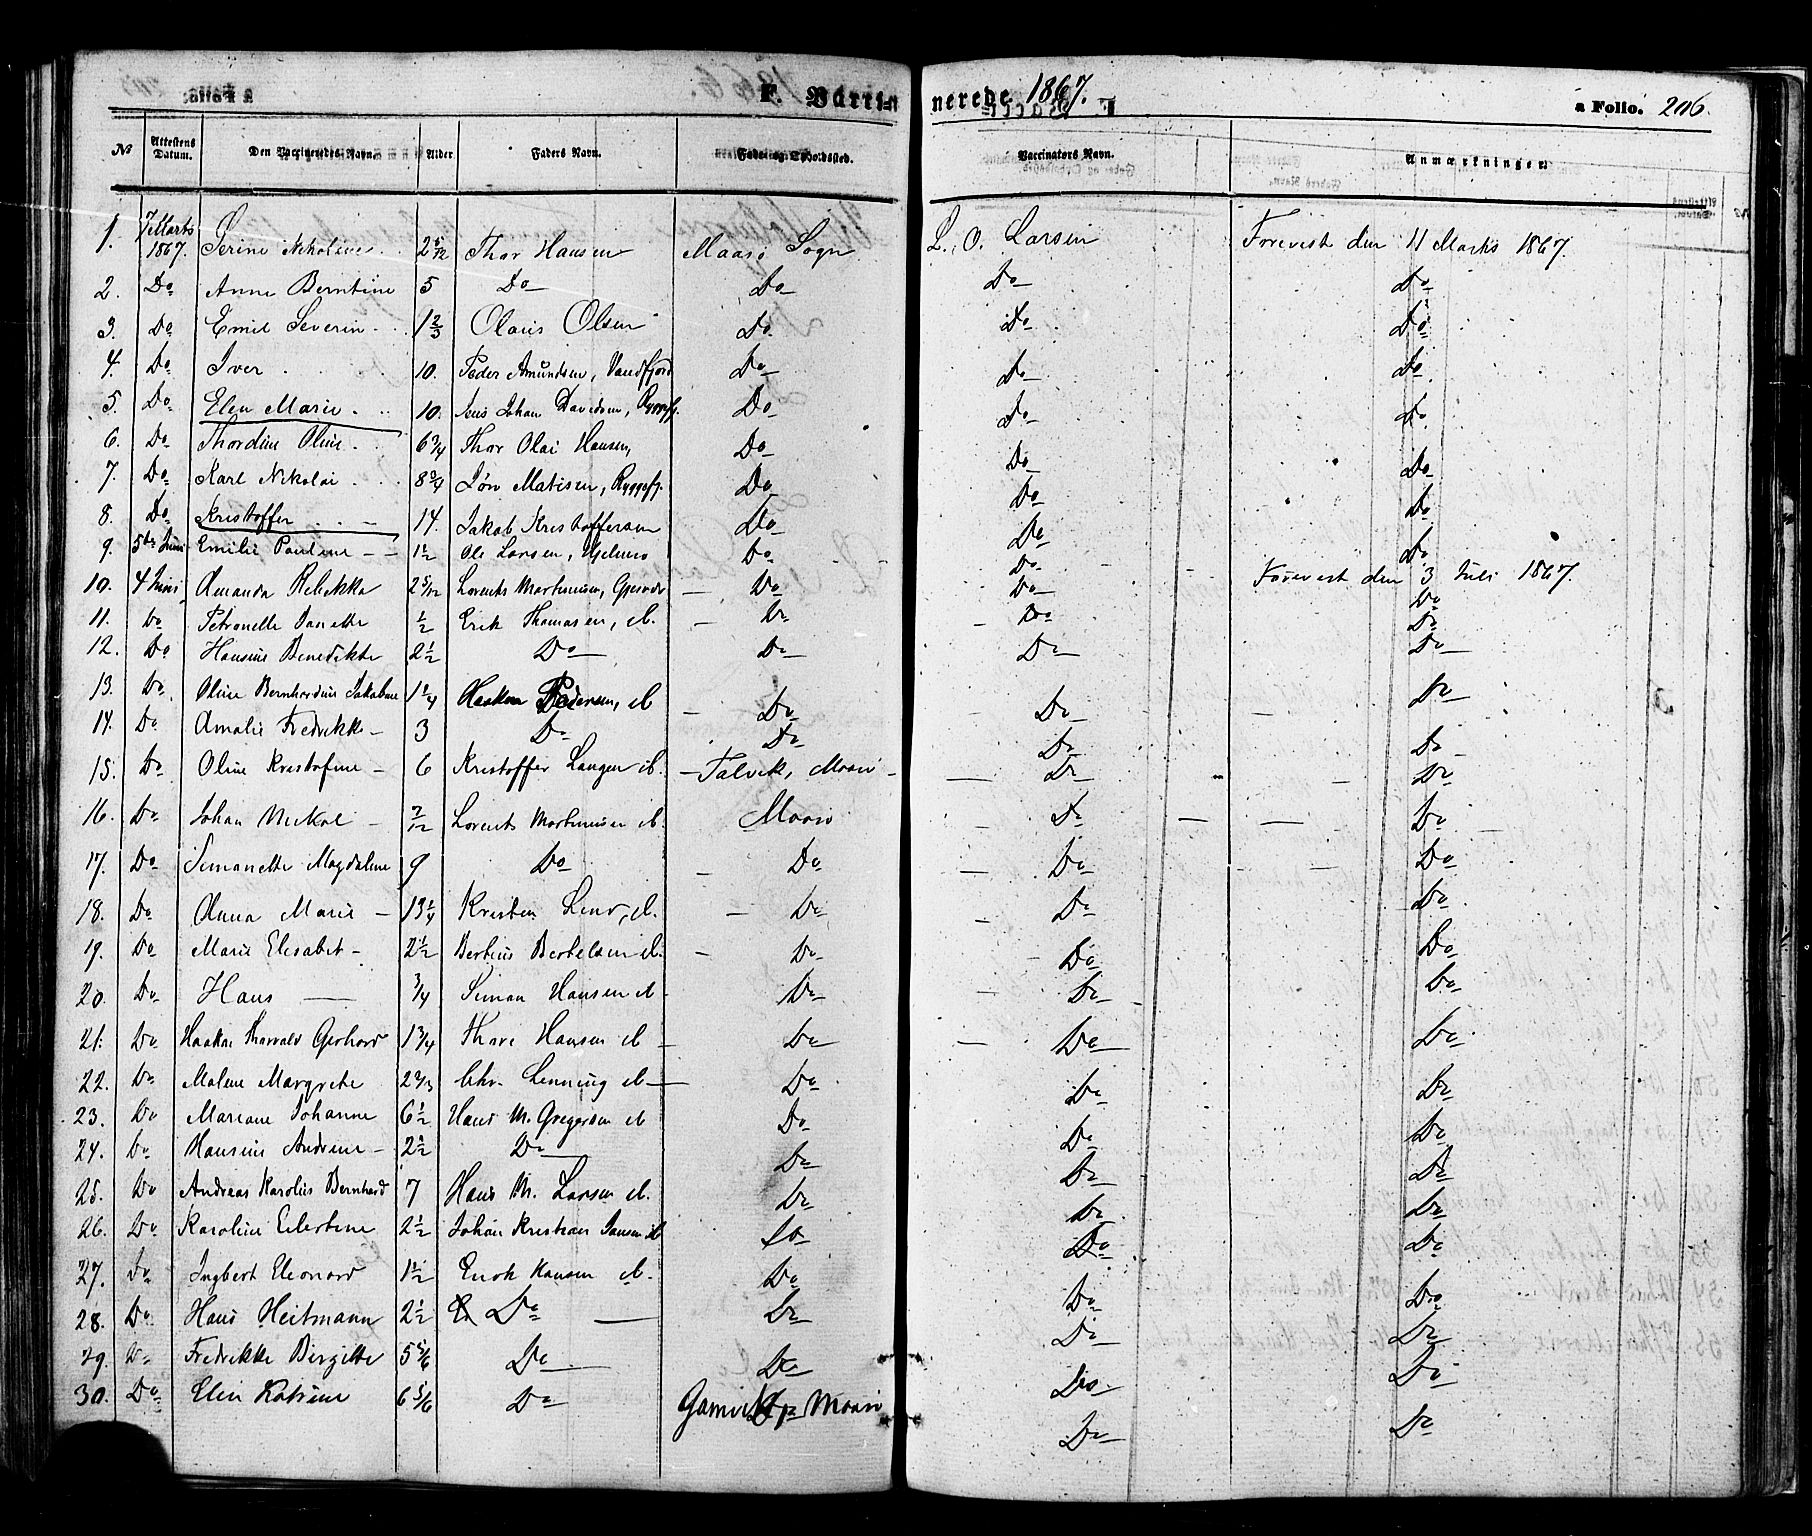 F. Vaccinerede 1867. a Folio. 206.
№ Attestens Datum. Den Vaccineredes Navn. Alder Faders Navn. Føde- og Opholdssted. Vaccinators Navn. Anmærkninger.
1. 7 Marts 1867. Serine Nikoline 2 5/12 Thor Hansen Maasø Sogn L. O. Larsen Forevist den 11 Marts 1867.
2. Do Anne Berntine 5 Do Do Do Do
3. Do Emil Severin 1 2/3 Olaus Olsen Do Do Do
4. Do Iver 10. Peder Amundsen, Vandfjord Do Do Do
5. Do Elen Marie 10. Jens Johan Davidsen, Ryggefj. Do Do Do
6. Do Thordine Oline 6 3/4 Thor Olai Hansen, Do Do Do
7. Do Karl Nikolai 8 3/4 Jøn Matisen, Ryggefj. Do Do Do
8. Do Kristoffer 14. Jakob Kristoffersen Do Do Do
9. 5te Juni Emilie Pauline 1 1/2 Ole Larsen, Hjelmsø Do Do Forevist den 3 Juli 1867.
10. 4 Juni Amanda Rebekka 2 5/12 Lorents Mortensen, Gjesvær Do Do Do
11. Do Petronelle Danette 1/2 Erik Thomasen, ib. Do Do Do
12. Do Hansine Benedikte 2 1/2 Do Do Do Do
13. Do Oline Bernhardine Jakobine 1 1/4 Haakon Pedersen, ib Do Do Do
14. Do Amalie Fredrikke 3 Do Do Do Do
15. Do Oline Kristofine 6 Kristoffer Langen ib. Talvik, Maasø Do Do
16. Do Johan Mikal 7/12 Lorents Mortensen ib. Maasø Do Do
17. Do Simonette Magdalene 9 Do Do Do Do
18. Do Anna Marie 13 1/4 Kristen ib. Do Do Do
19. Do Marie Elisabet 2 1/2 Bertius Bertelsen ib. Do Do Do
20. Do Hans 3/4 Simon Hansen ib Do Do Do
21. Do Haakon Tharvald Gerhard 1 3/4 Thore Hansen ib Do Do Do
22. Do Malene Margrete 2 2/3 Chr. Lenning ib Do Do Do
23. Do Mariane Johanne 6 1/2 Hans M. Gregersen ib Do Do Do
24. Do Hansine Andrine 2 1/2 Do Do Do Do
25. Do Andreas Karolus Bernhard 7 Hans M. Larsen ib. Do Do Do
26. Do Karoline Eilertine 2 1/2 Johan Kristian Jansen ib Do Do Do
27. Do Ingbert Eleonard 1 1/2 Enok Hansen ib. Do Do Do
28. Do Hans Heitmann 2 1/2 Do Do Do Do
29. Do Fredrikke Birgitte 5 5/6 Do Do Do Do
30. Do Elen Katrine 6 5/6 Do Gamvik, Maasø Do Do